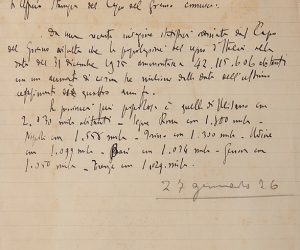 L'Ufficio Stampa del Capo del Governo comunica:
Da una recente indagine statistica del Capo
del Governo risulta che la popolazione del regno d'Italia alla
data del 31 dicembre 1925 ammontava a 42.115.606 abitanti
con un aumento di circa tre milioni dalla data dell'ultimo
censimento quattro anni fa.
Le provincie più popolose è quella di Milano con
2.030 mila abitanti segue Roma con 1.800 mila -
Napoli con 1.558 mila - Torino con 1.300 mila - Udine
con 1.099 mila - Bari con 1.034 mila - Genova con
1.050 mila - Firenze con 1.029 mila.
27 gennaio 26